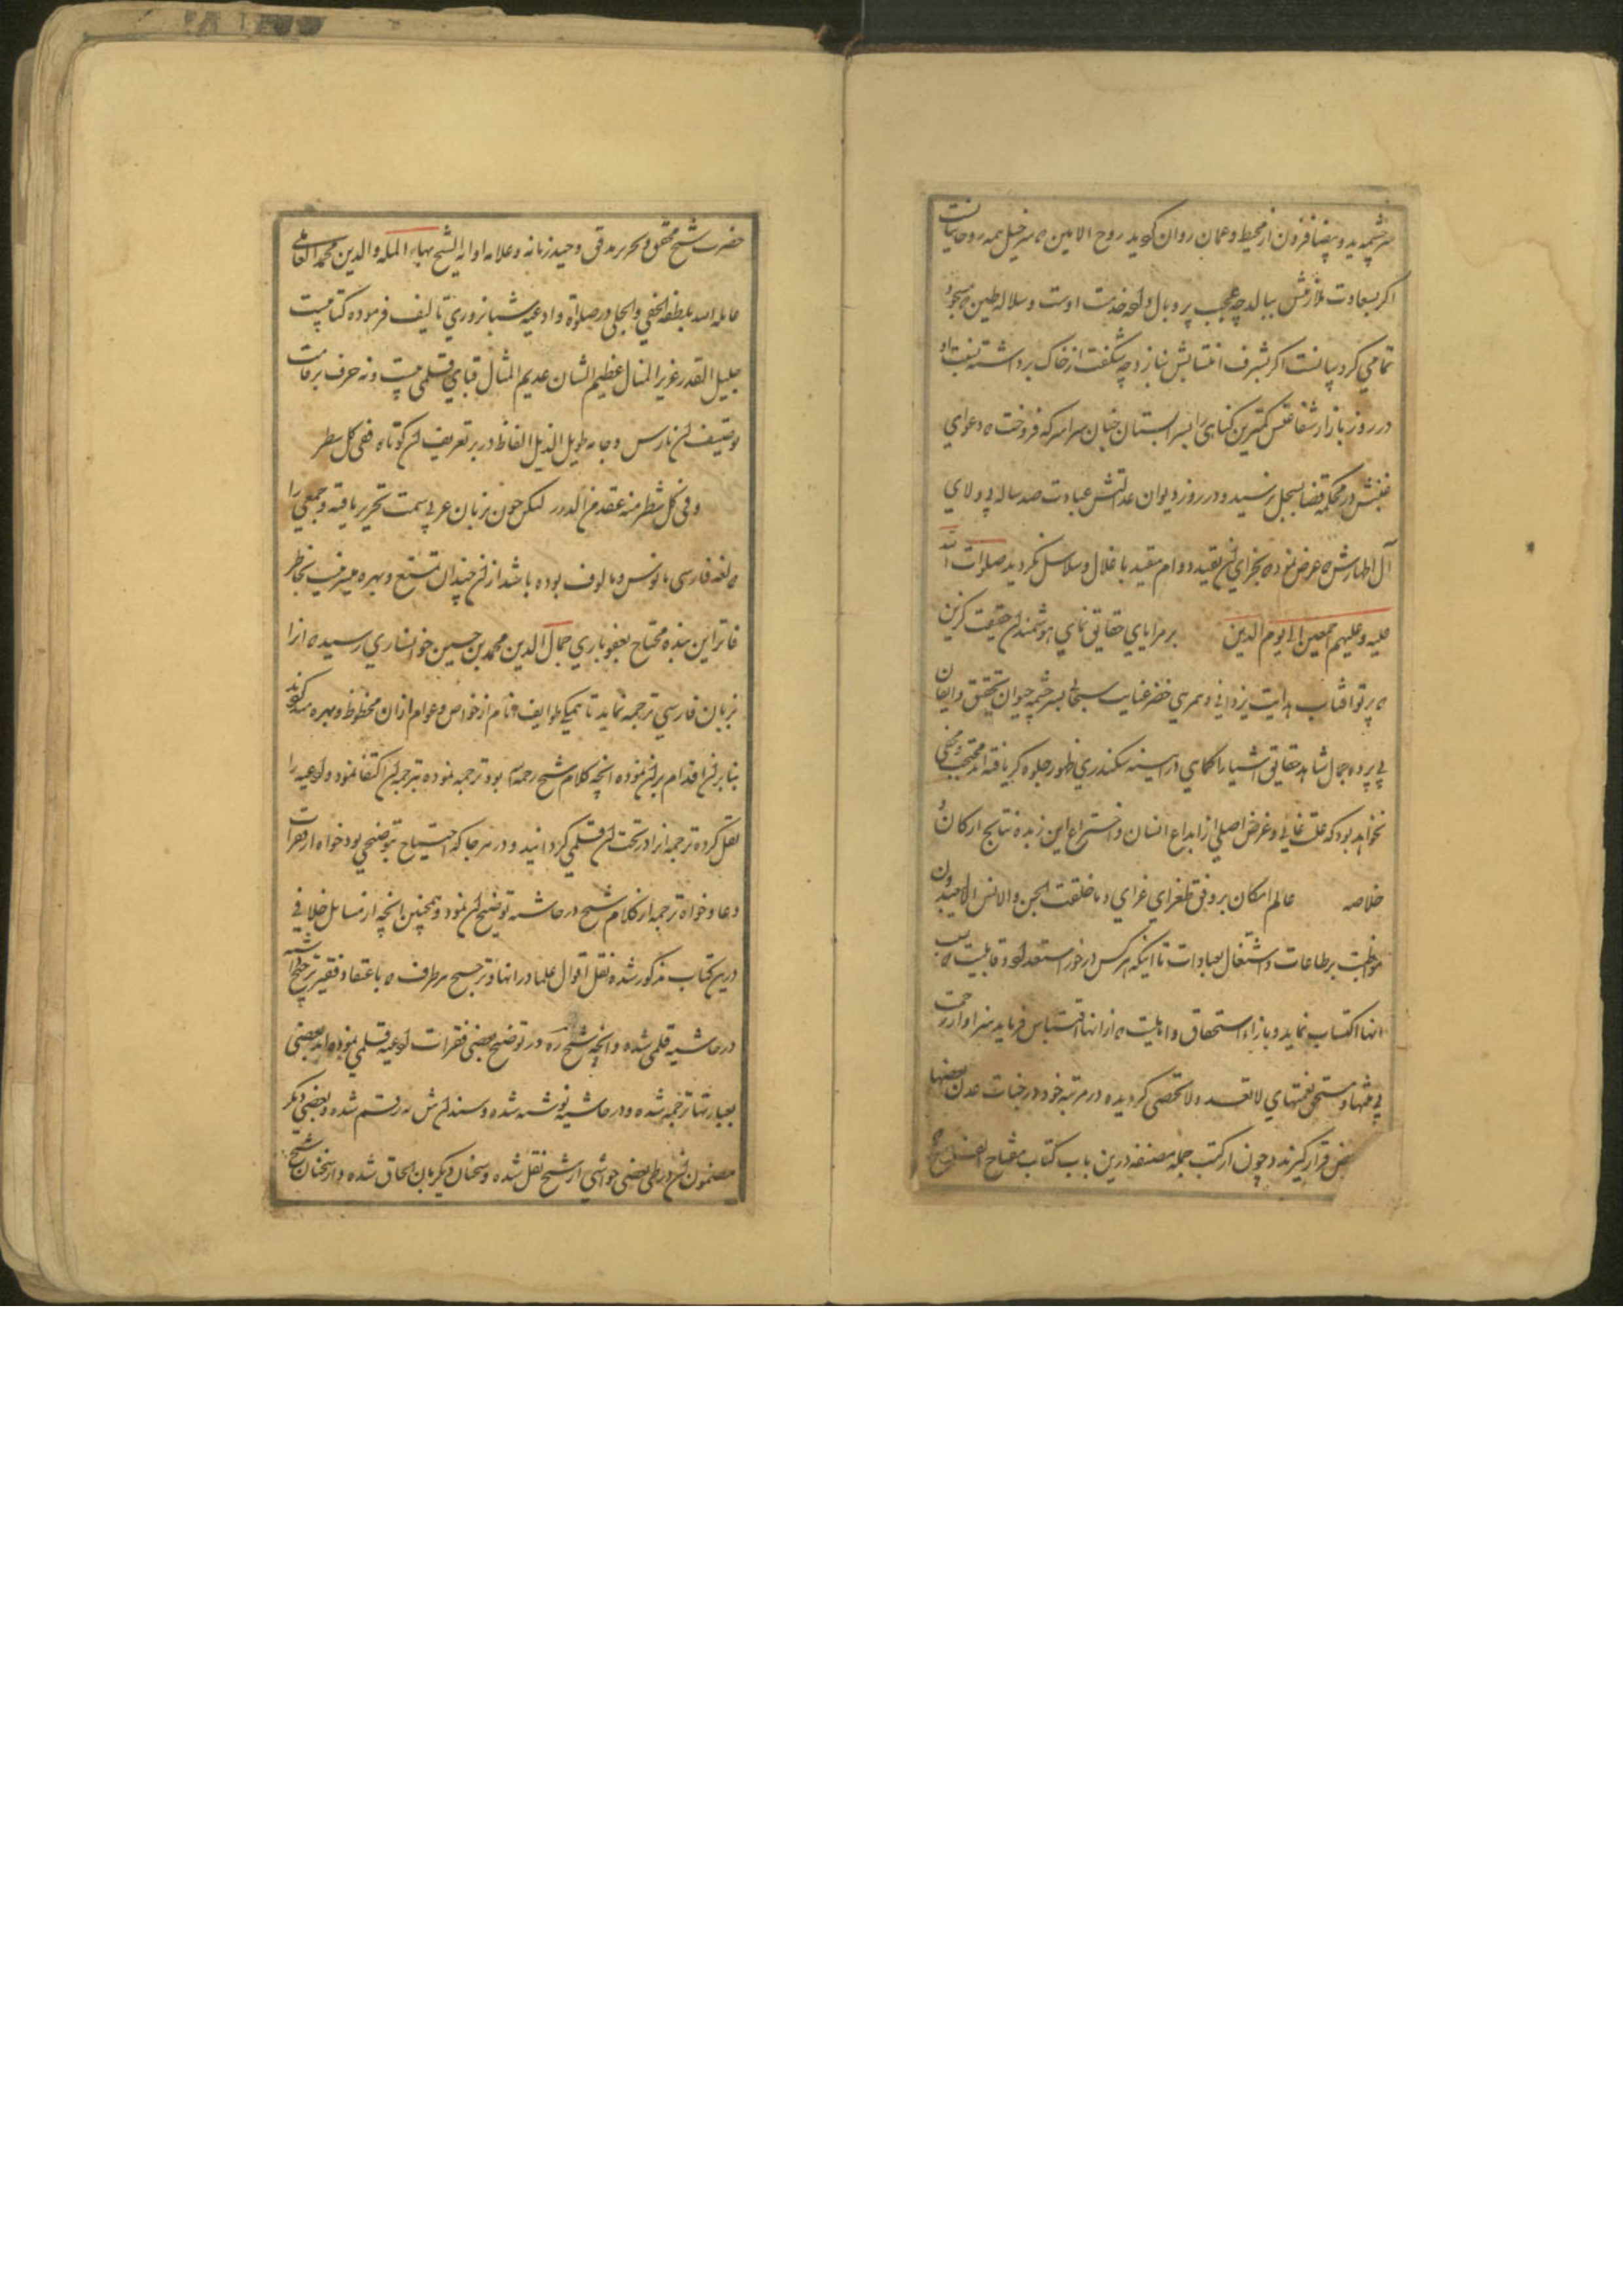 سرچشمه ید و بیضا فزون از محیط و عمان روان کوید روح الامین که سرخیل همه روحانیانست
اکر بسعادت ملازمتش ببالد چه عجب پر و بال خدمت اوست و سلاله طین که مسجود
تمامی کروبیانست اکر بشرف انتسابش بنازد چه شکفت از خاک برداشته نسبت او
در روز بازار شفاعتش کمترین کناهی را بسرابستان جنان سراسر که فروخت که دعوای
در محکمه قضا بسجل نرسید و در روز دیوان عدالتش عبادت صد ساله بی ولای
آل اطهارش که عرض نمود که بجزای آن بقید دوام مقید باغلال و سلاسل نکردید صلوات الله
علیه و علیهم اجمعین الی یوم الدین بر مرایای حقایق نمای هوشمندان حقیقت کزین
که پرتو آفتاب هدایت یزدانی و همرهی خضر عنایت سبحانی بسرچشمه حیوان تحقیق و ایقان
بی پرده جمال شاهد حقایق اشیا را کماهی در آیینه سکندری ظهور جلوه کر یافته اند محتجب و مخفی
نخواهد بود که علت غایی و غرض اصلی از ابداع انسان و اختراع این زبده نتایج ارکان و
خلاصه عالم امکان بر وفق طغرای غرای و ما خلقت الجن و الانس الا لیعبدون
مواظبت بر طاعات و اشتغال بعبادات تا اینکه هر کس در خور استعداد و قابلیت که
انها اکتساب نماید و بازاء استحقاق و اهلیت که از انها اقتباس فرماید سزاوار رحمت
بی منتها و مستحق نعمتهای لا تعد و لا تحصی کردیده در مرتبه خود در جنات عدن بعضها
بعض قرار کیرند و چون از کتب جمله مصنفه درین باب کتاب مفتاح الفلاح
حضرت شیخ محقق و نحریر مدقق وحید زمانه و علامه اوانه الشیخ بهاء المله و الدین محمد العاملی
عامله الله بلطفه الخفی و الجلی در صلوة و ادعیه شبانروزی تالیف فرموده کتابیست
جلیل القدر عزیز المنال عظیم الشان عدیم المثال قبای قلمی نیست و نه حرف بر قامت
توصیف آن نارس و جامه طویل الذیل الفاظ در بر تعریف آن کوتاه ففی کل سطر
و فی کل شطر منه عقد من الدرر لیکن چون بزبان عربی سمت تحریر یافته و جمعی را
که لغه فارسی مانوس و مالوف بوده باشد از آن چندان تمتع و بهره میسر نیست بخاطر
فاتر این بنده محتاج بعفو باری جمال الدین محمد بن حسین خوانساری رسید که آنرا
بزبان فارسی ترجمه نماید تا همکی طوایف انام از خواص و عوام از ان محظوظ و بهره مند کردند
بنابر آن اقدام بر آن نموده انچه کلام شیخ رحمه الله بود ترجمه نموده بترجمه آن اکتفا نمود و ادعیه را
نقل کرده ترجمه آنرا در تحت آن قلمی کردانید و در هر جا که احتیاج بتوضیحی بود خواه از فقرات
دعا و خواه ترجمه از کلام شیخ در حاشیه توضیح آن نمود و همچنین انچه از مسایل خلافی
درین کتاب مذکور شده نقل اقوال علما در انها و ترجیح هر طرف که باعتقاد فقیر ترجیح داشته
در حاشیه قلمی شده و انچه شیخ ره در توضیح بعضی فقرات ادعیه قلمی نموده اند بعضی
بعبارتها ترجمه شده و در حاشیه نوشته شده و سند آن ش ره رقم شده و بعضی دیکر
مضمون آن در طی بعضی حواشی از شیخ نقل شده و سخنان دیکر بان الحاق شده و از سخنان شیخ